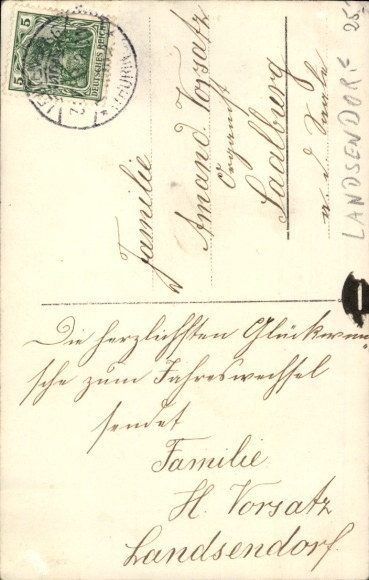 DEUTSCHES REICH
5
5
Familie
Amand. Vorsatz
Organist
Saalburg
a. d. Saale
LANDSENDORF
25.
Die herzlichsten Glückwün-
sche zum Jahreswechsel
sendet
Familie
H. Vorsatz
Landsendorf.